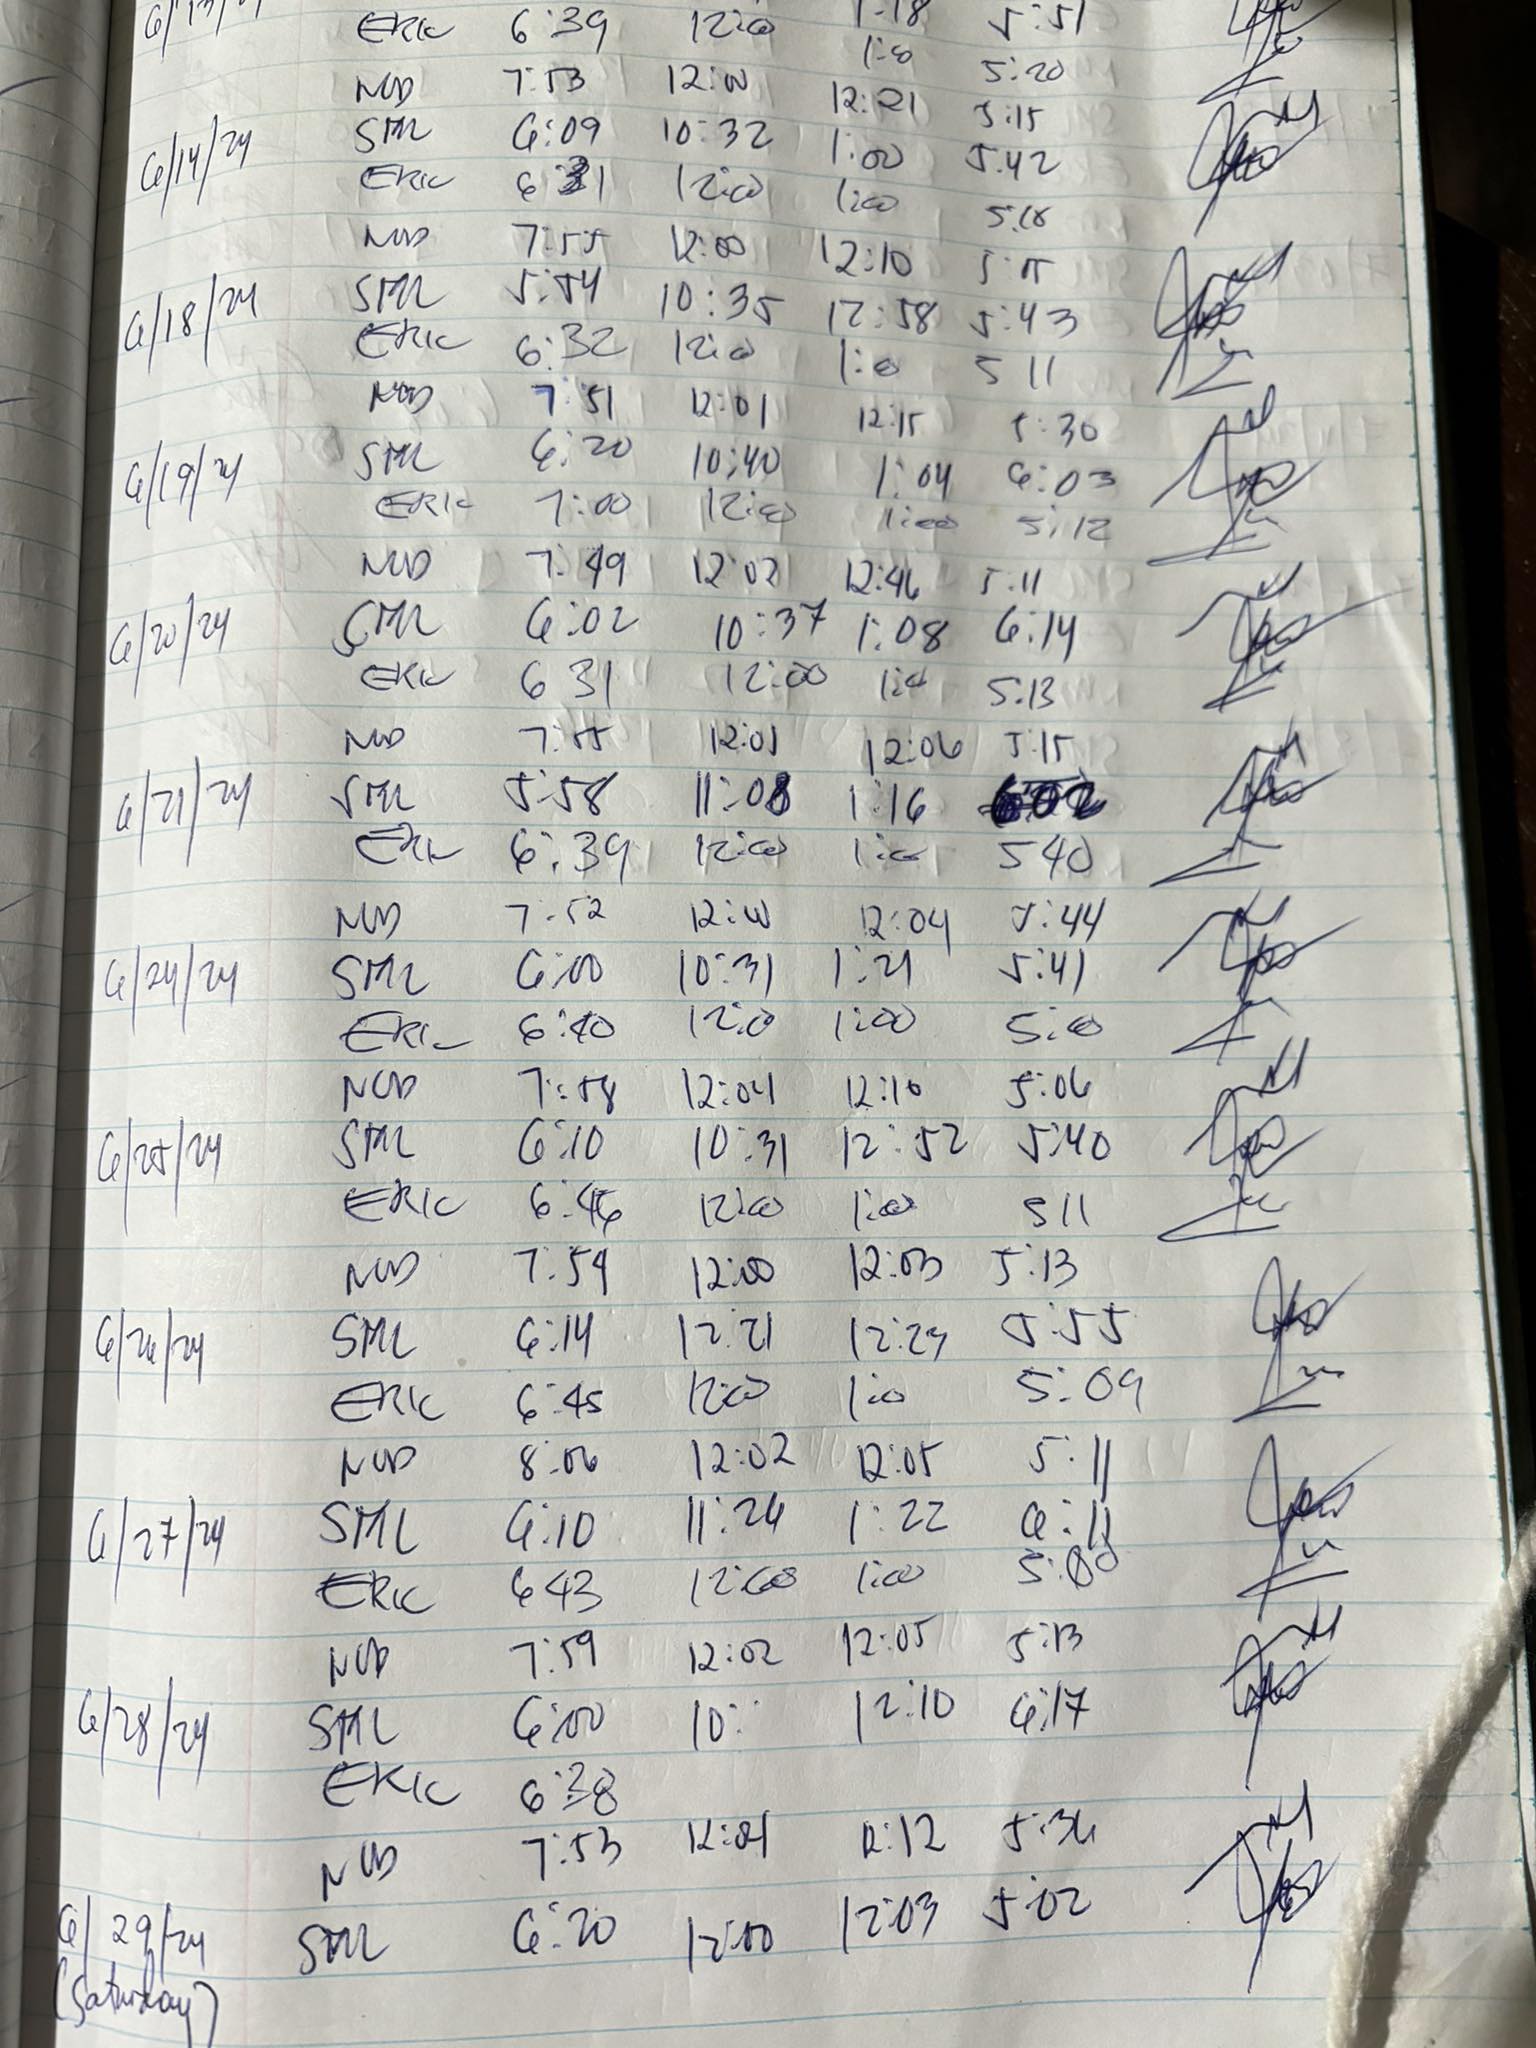 6/13/24 1:18
ERIC 6:39 12:00 1:00 5:51
NCD 7:53 12:00 12:21 5:20
6/14/24 SML 6:09 10:32 1:00 5:15
ERIC 6:31 12:00 1:00 5:42
NCD 7:55 12:00 12:10 5:18
6/18/24 SML 5:54 10:35 12:58 5:15
ERIC 6:32 12:00 1:00 5:43
NCD 7:51 12:01 12:15 5 11
6/19/24 SML 6:20 10:40 1:04 5:30
ERIC 7:00 12:00 1:00 6:03
5:12
NCD 7:49 12:02 12:46 5:11
6/20/24 SML 6:02 10:37 1:08 6:14
ERIC 6 31 12:00 1:00 5:13
NCD 7:55 12:01 12:06 5:15
6/21/24 SML 5:58 11:08 1:16 6:02
ERIC 6:39 12:00 1:00 5 40
NCD 7:52 12:00 12:04 5:44
6/24/24 SML 6:00 10:31 1:21 5:41
ERIC 6:40 12:00 1:00 5:00
NCD 7:58 12:04 12:10 5:06
6/25/24 SML 6:10 10:31 12:52 5:40
ERIC 6:46 12:00 1:00 5 11
NCD 7:59 12:00 12:03 5:13
6/26/24 SML 6:14 12:21 12:23 5:55
ERIC 6:45 12:00 1:00 5:09
NCD 8:06 12:02 12:05 5:11
6/27/24 SML 6:10 11:24 1:22 6:11
ERIC 6 43 12:00 1:00 5:00
NCD 7:59 12:02 12:05 5:13
6/28/24 SML 6:00 10: 12:10 6:17
ERIC 6:38
NCD 7:53 12:01 12:12 5:36
6/29/24 SML 6:20 12:00 12:03 5:02
(Saturday)